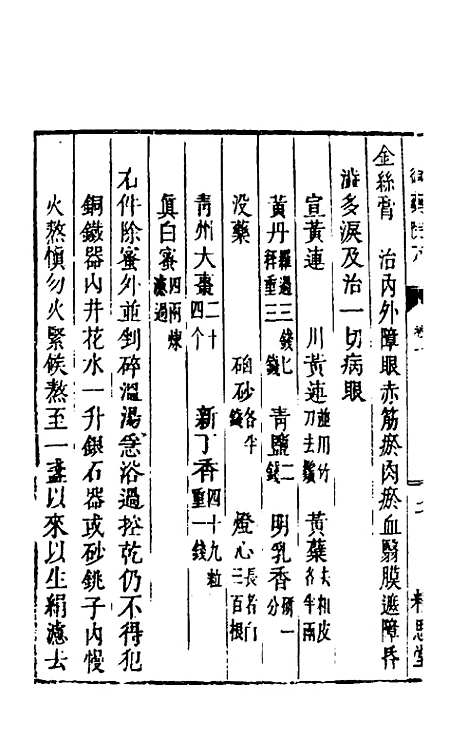 御藥院方
卷十
精思堂
金絲膏 治内外障眼赤筋瘀肉瘀血翳膜遮障昏
澁多淚及治一切病眼
宣黃連 川黃連並用竹刀去鬚 黃蘗去粗皮各半兩
黃丹羅過三錢匕秤重三錢 青鹽二錢 明乳香研一分
没藥 硇砂各半錢 燈心長者白三百根
青州大棗二十四个 新丁香四十九粒重一錢
真白蜜四兩煉濾過
右件除蜜外並剉碎溫湯急浴過控乾仍不得犯
銅鐵器内井花水一升銀石器或砂銚子内慢
火熬慎勿火緊候熬至一盞以來以生絹濾去